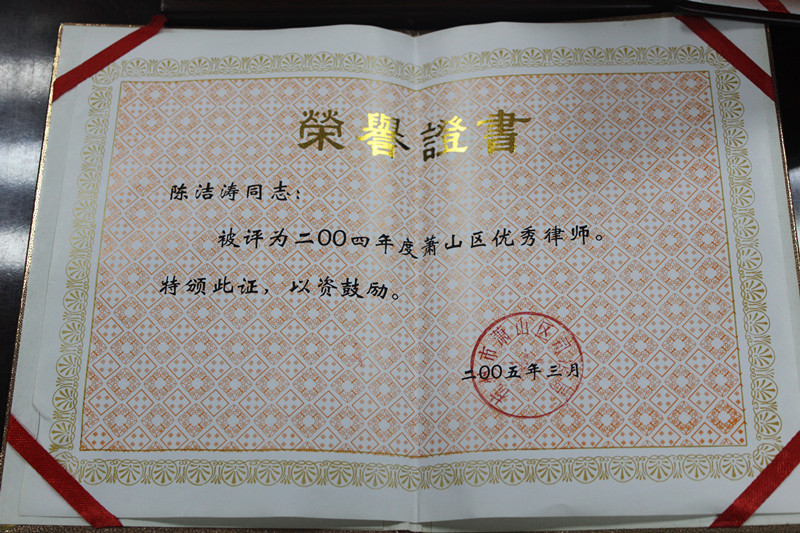 榮譽證書
陈洁涛同志：
被评为二00四年度萧山区优秀律师。
特颁此证，以资鼓励。
市萧山区司
二00五年三月